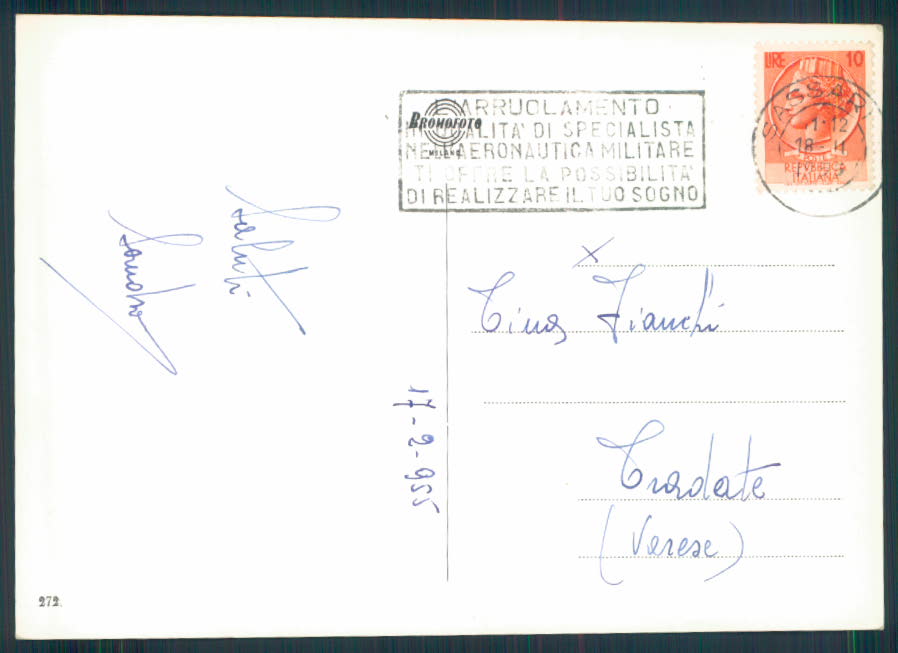 LIRE 10
REPVBBLICA
ITALIANA
SASSARI
1·12
18 · II
L'ARRUOLAMENTO
IN QUALITA' DI SPECIALISTA
NELL'AERONAUTICA MILITARE
TI OFFRE LA POSSIBILITA'
DI REALIZZARE IL TUO SOGNO
BROMOFOTO
MILANO
Saluti
Sandro
17-2-955
X
Tina Fianchi
Tradate
(Varese)
272.